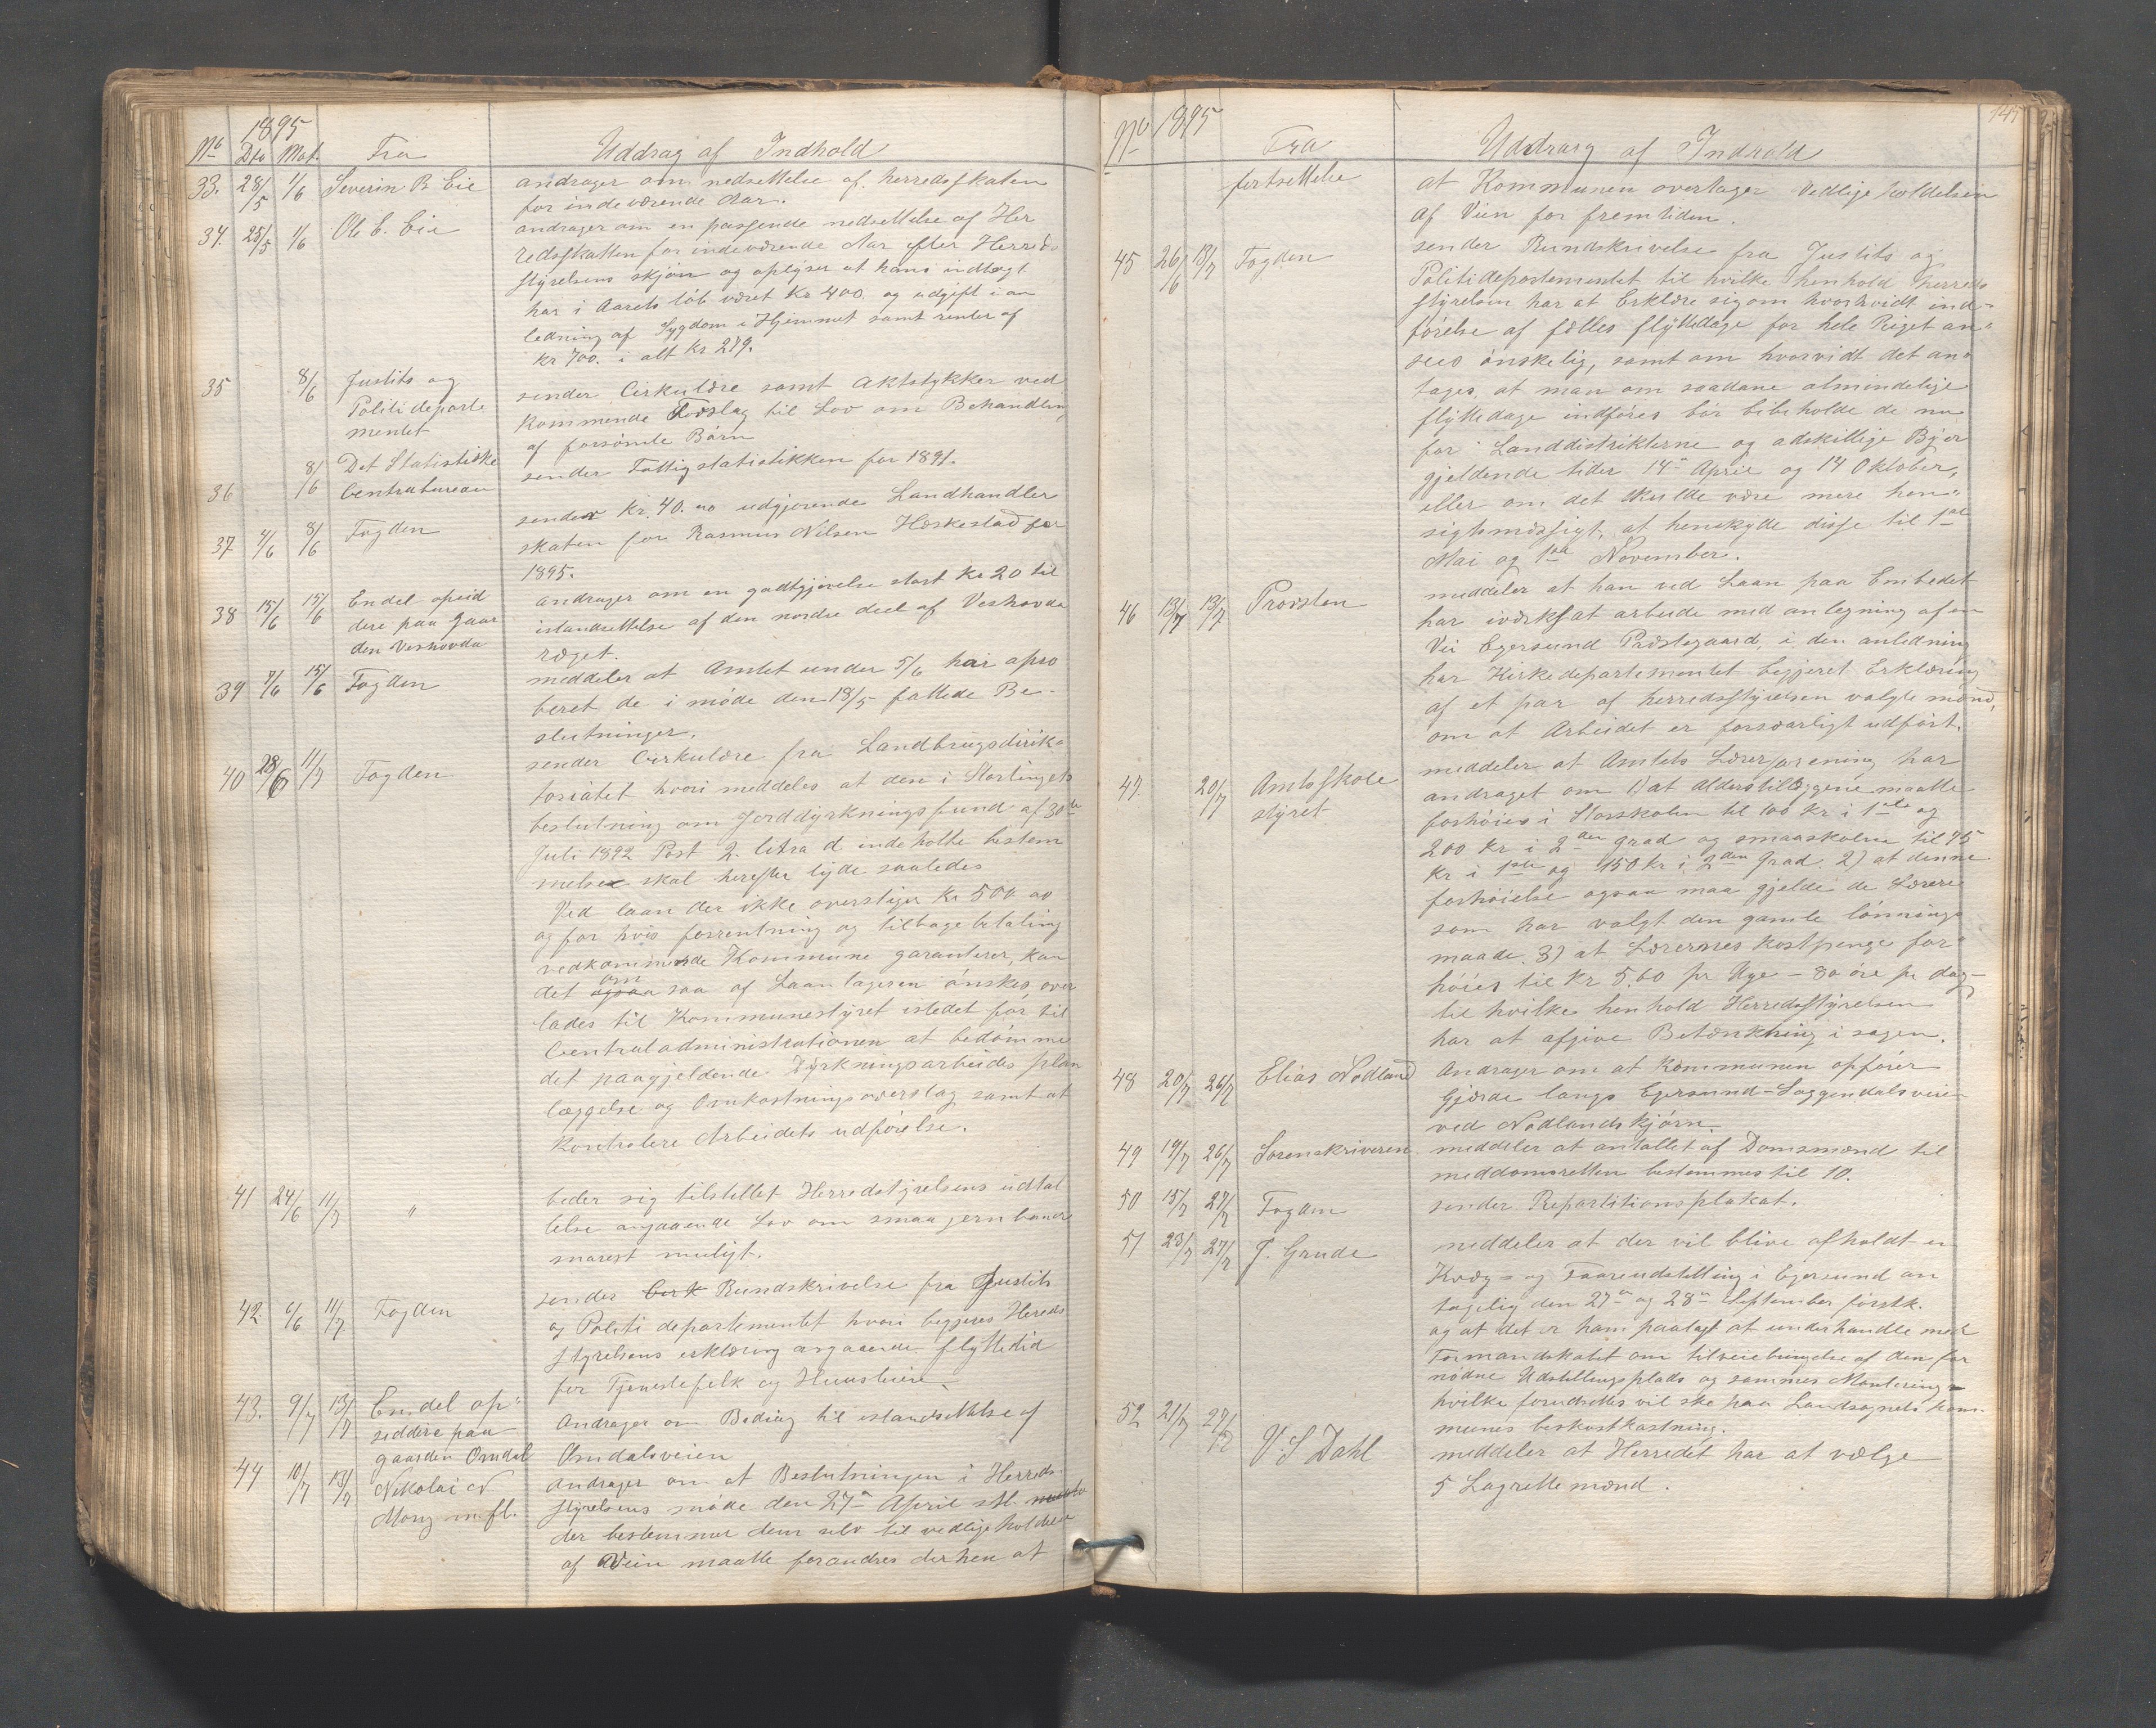 1895
No Dto Mot. Fra Uddrag af Indhold
33. 28/5 1/6 Severin B. Eie andrager om nedsettelse af herredsskaten
for indeværende Aar.
34. 25/5 1/6 Ole E. Eie andrager om en passende nedsettelse af Her
redsskatten for indeværende Aar efter Herreds
styrelsens skjøn og oplyser at hans indtægt
har i Aarets løb været Kr 400. og udgift i an
ledning af Sygdom i Hjemmet samt renter af
kr 700. i alt kr 279.
35 8/6 Justits og sender Cirkulære samt Aktstykker ved
Politideparte kommende Forslag til Lov om Behandling
mentet af forsømte Børn
36 8/6 Det Statistiske sender Fattigstatistikken for 1891.
Centralbureau
37 4/6 8/6 Fogden sender Kr. 40.00 udgjørende Landhandler
skaten for Rasmus Nilsen Hæskestad for
1895.
38 15/6 15/6 Endel opsid andrager om en godtgjørelse stort Kr 20 til
dere paa Gaar istandsettelse af den nordre deel af Veshovda
den Veshovda ræget.
39 7/6 15/6 Fogden meddeler at Amtet under 5/6 har apro
beret de i møde den 18/5 fattede Be-
slutninger.
40 28/6 11/7 Fogden sender Cirkulære fra Landbrugsdirik
toriatet hvori meddeles at den i Stortingets
beslutning om Jorddyrkningsfund af 30te
Juli 1892 Post 2. litra d indeholte bestem
melse skal herefter lyde saaledes
Ved laan der ikke overstiger Kr 500 00
og for hvis forrentning og tilbagebetaling
vedkommende Kommune garanterer, kan
det om saa af Laantageren ønskes, over
lades til Kommunestyret istedet for til
Centraladministrationen at bedømme
det paagjeldende Dyrkningsarbeides plan
læggelse og Omkostningsoverslag samt at
kontrolere Arbeidets udførelse.
41 24/6 11/7 " beder sig tilstillet Herredstyrelsens udtal
telse angaaende Lov om smaa jernbaner
snarest muligt.
42 6/6 11/7 Fogden sender Cirk Rundskrivelse fra Justits
og Politi departementet hvori begjeres Hereds
styrelsens erklæring angaaende flyttetid
for Tjenestefolk og Huusleiere
43. 9/7 13/7 Endel op" Andrager om Bidrag til istandsettelse af
siddere paa Omdalsveien
gaarden Omdal
44 10/7 13/7 Nikolai N andrager om at Beslutningen i Herreds
Mong m. fl. styrelsens møde den 27de April stl.
der bestemmer dem selv til vedligeholdelse
af Veien maatte forandres derhen at
145
No 1895
Fra Uddrag af Indhold
fortsettelse at Kommunen overtager Vedligeholdelsen
af Veien for fremtiden.
45 26/6 13/7 Fogden sender Rundskrivelse fra Justits og
Politidepartementet til hvilke henhold herreds
styrelsen har at Erklære sig om hvorhvidt ind-
førelse af fælles flyttedage for hele Riget an-
sees ønskelig, samt om hvorvidt det an-
tages, at man om saadane almindelige
flyttedage indføres bør bibeholde de nu
for Landdistrikterne og adskillige Byer
gjeldende tider 14de April og 14 Oktober,
eller om det skulde være mere hen-
sigtsmæssigt, at henskyde disse til 1ste
Mai og 1ste November.
46 13/7 13/7 Provsten meddeler at han ved Laan paa Embedet
har iværksat arbeide med anlegning af en
Vei Egersund Præstegaard, i den anledning
har Kirkedepartementet begjeret Erklæring
af et par af herredsstyrelsen valgte mænd,
om at Arbeidet er forsvarligt udført.
47 20/7 Amtsskole meddeler at Amtets Lærerforening har
styret andraget om 1) at Alderstillæggene maatte
forhøies i Storskolen til 100 kr i 1ste og
200 Kr i 2den grad og smaaskolen til 75
kr i 1ste og 150 kr i 2den Grad. 2) at denne
forhøielse ogsaa maa gjelde de Lærere
som har valgt den gamle lønnings
maade. 3) at Lærernes kostpenge for-
høies til kr 5.60 pr Uge - 80 øre pr dag-
til hvilke henhold Herredsstyrelsen
har at afgive Betænkning i sagen.
48 20/7 26/7 Elias Nodland Andrager om at Kommunen opfører
Gjerde langs Egersund-Soggendalsveien
ved Nodlandskjørn.
49 19/7 26/7 Sorenskriveren meddeler at antallet af Domsmænd til
meddomsretten bestemmes til 10.
50 15/7 27/7 Fogden sender Repartitionsplakat.
51 23/7 27/7 J. Grude meddeler at der vil blive afholdt en
Kvæg- og Faareudstilling i Egersund an
tagelig den 27de og 28de September førstk.
og at det er ham paalagt at underhandle med
Formandskabet om tilveiebringelse af den for
nødne Udstillingsplads og sammes Montering-
hvilke forudsettes vil ske paa Landsognets kom-
munes beskostkastning.
52 21/7 27/7 V. S Dahl meddeler at Herredet har at vælge
5 Lagrettemænd.